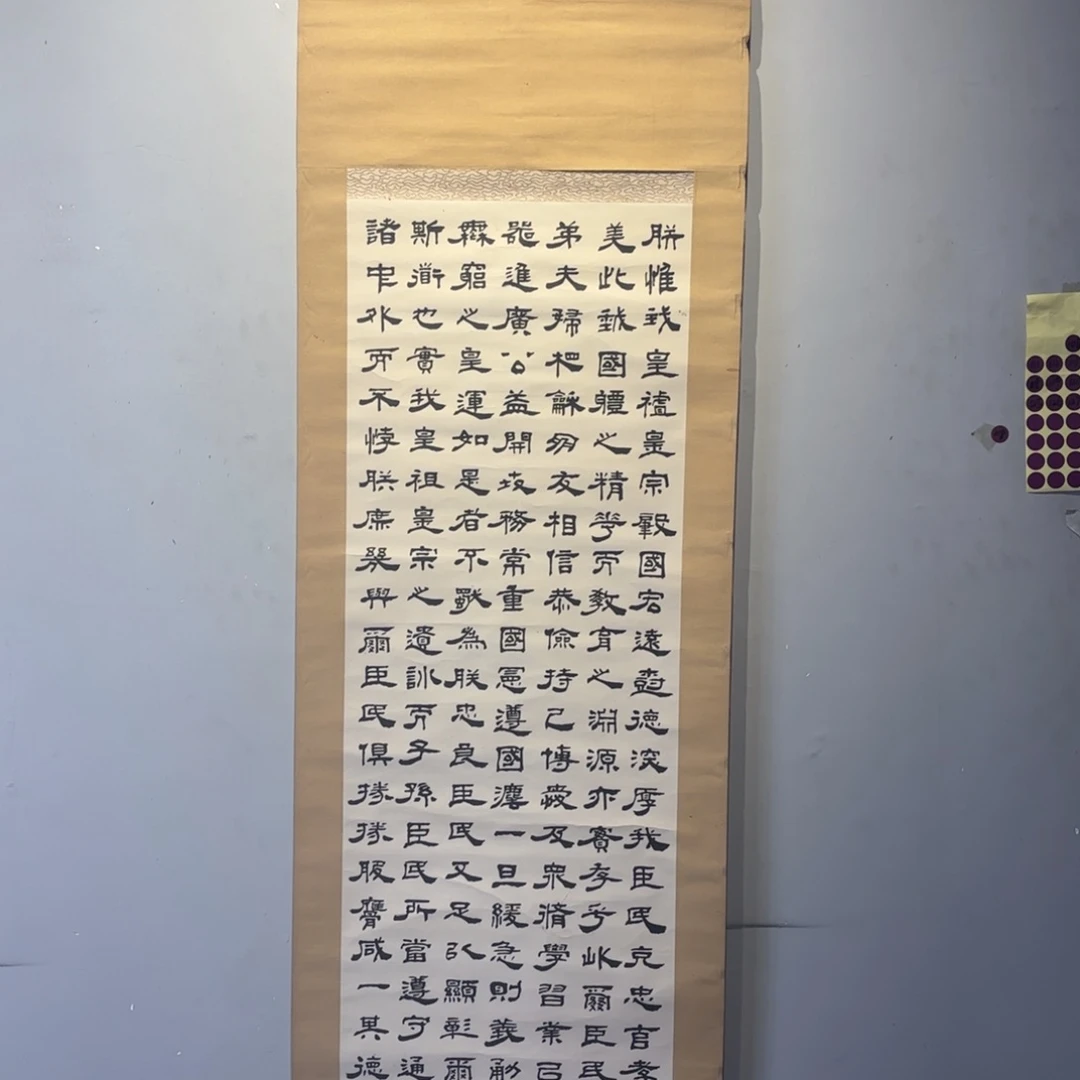 朕惟我皇祖皇宗肇國宏遠尌德深厚我臣民克忠克孝
美此我國體之精華而教育之淵源亦實存乎此爾臣民
弟夫婦相和朋友相信恭儉持己博愛及衆修學習業以
器進廣公益開世務常重國憲遵國灋一旦緩急則義勇
無窮之皇運如是者不獨為朕忠良臣民又足以顯彰爾
斯道也實我皇祖皇宗之遺訓而子孫臣民所當遵守通
諸中外而不悖朕庶幾與爾臣民俱拳拳服膺咸一其德